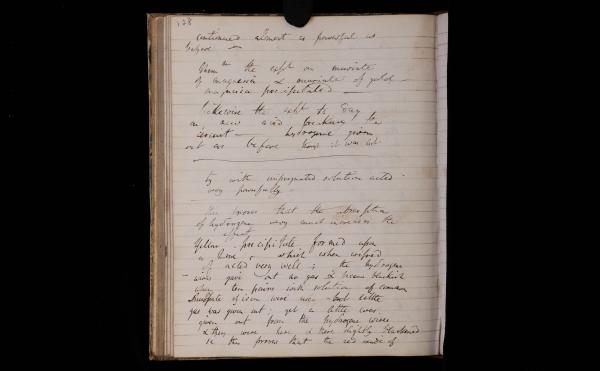 128
continued almost as powerful as
before —
the expt on muriate
of magnesia & muriate of gold —
magnesia precipitated —
Likewise the expt to Day
acid breaking the
circuit — hydrogene given
out as before
with impregnated solution acted
very powerfully —
This proves that the absorption
of hydrogene very much increases the
effect
Yellow precipitate formed upon
which when wiped
off acted very well; the hydrogene
wires gave out no gas & became blackish
when ten pairs with solution of common
Sulphate of iron were used — but little
gas was given out; yet a little was
given out from the hydrogene wires
& they were here & there slightly blackened
this proves that the red oxide of